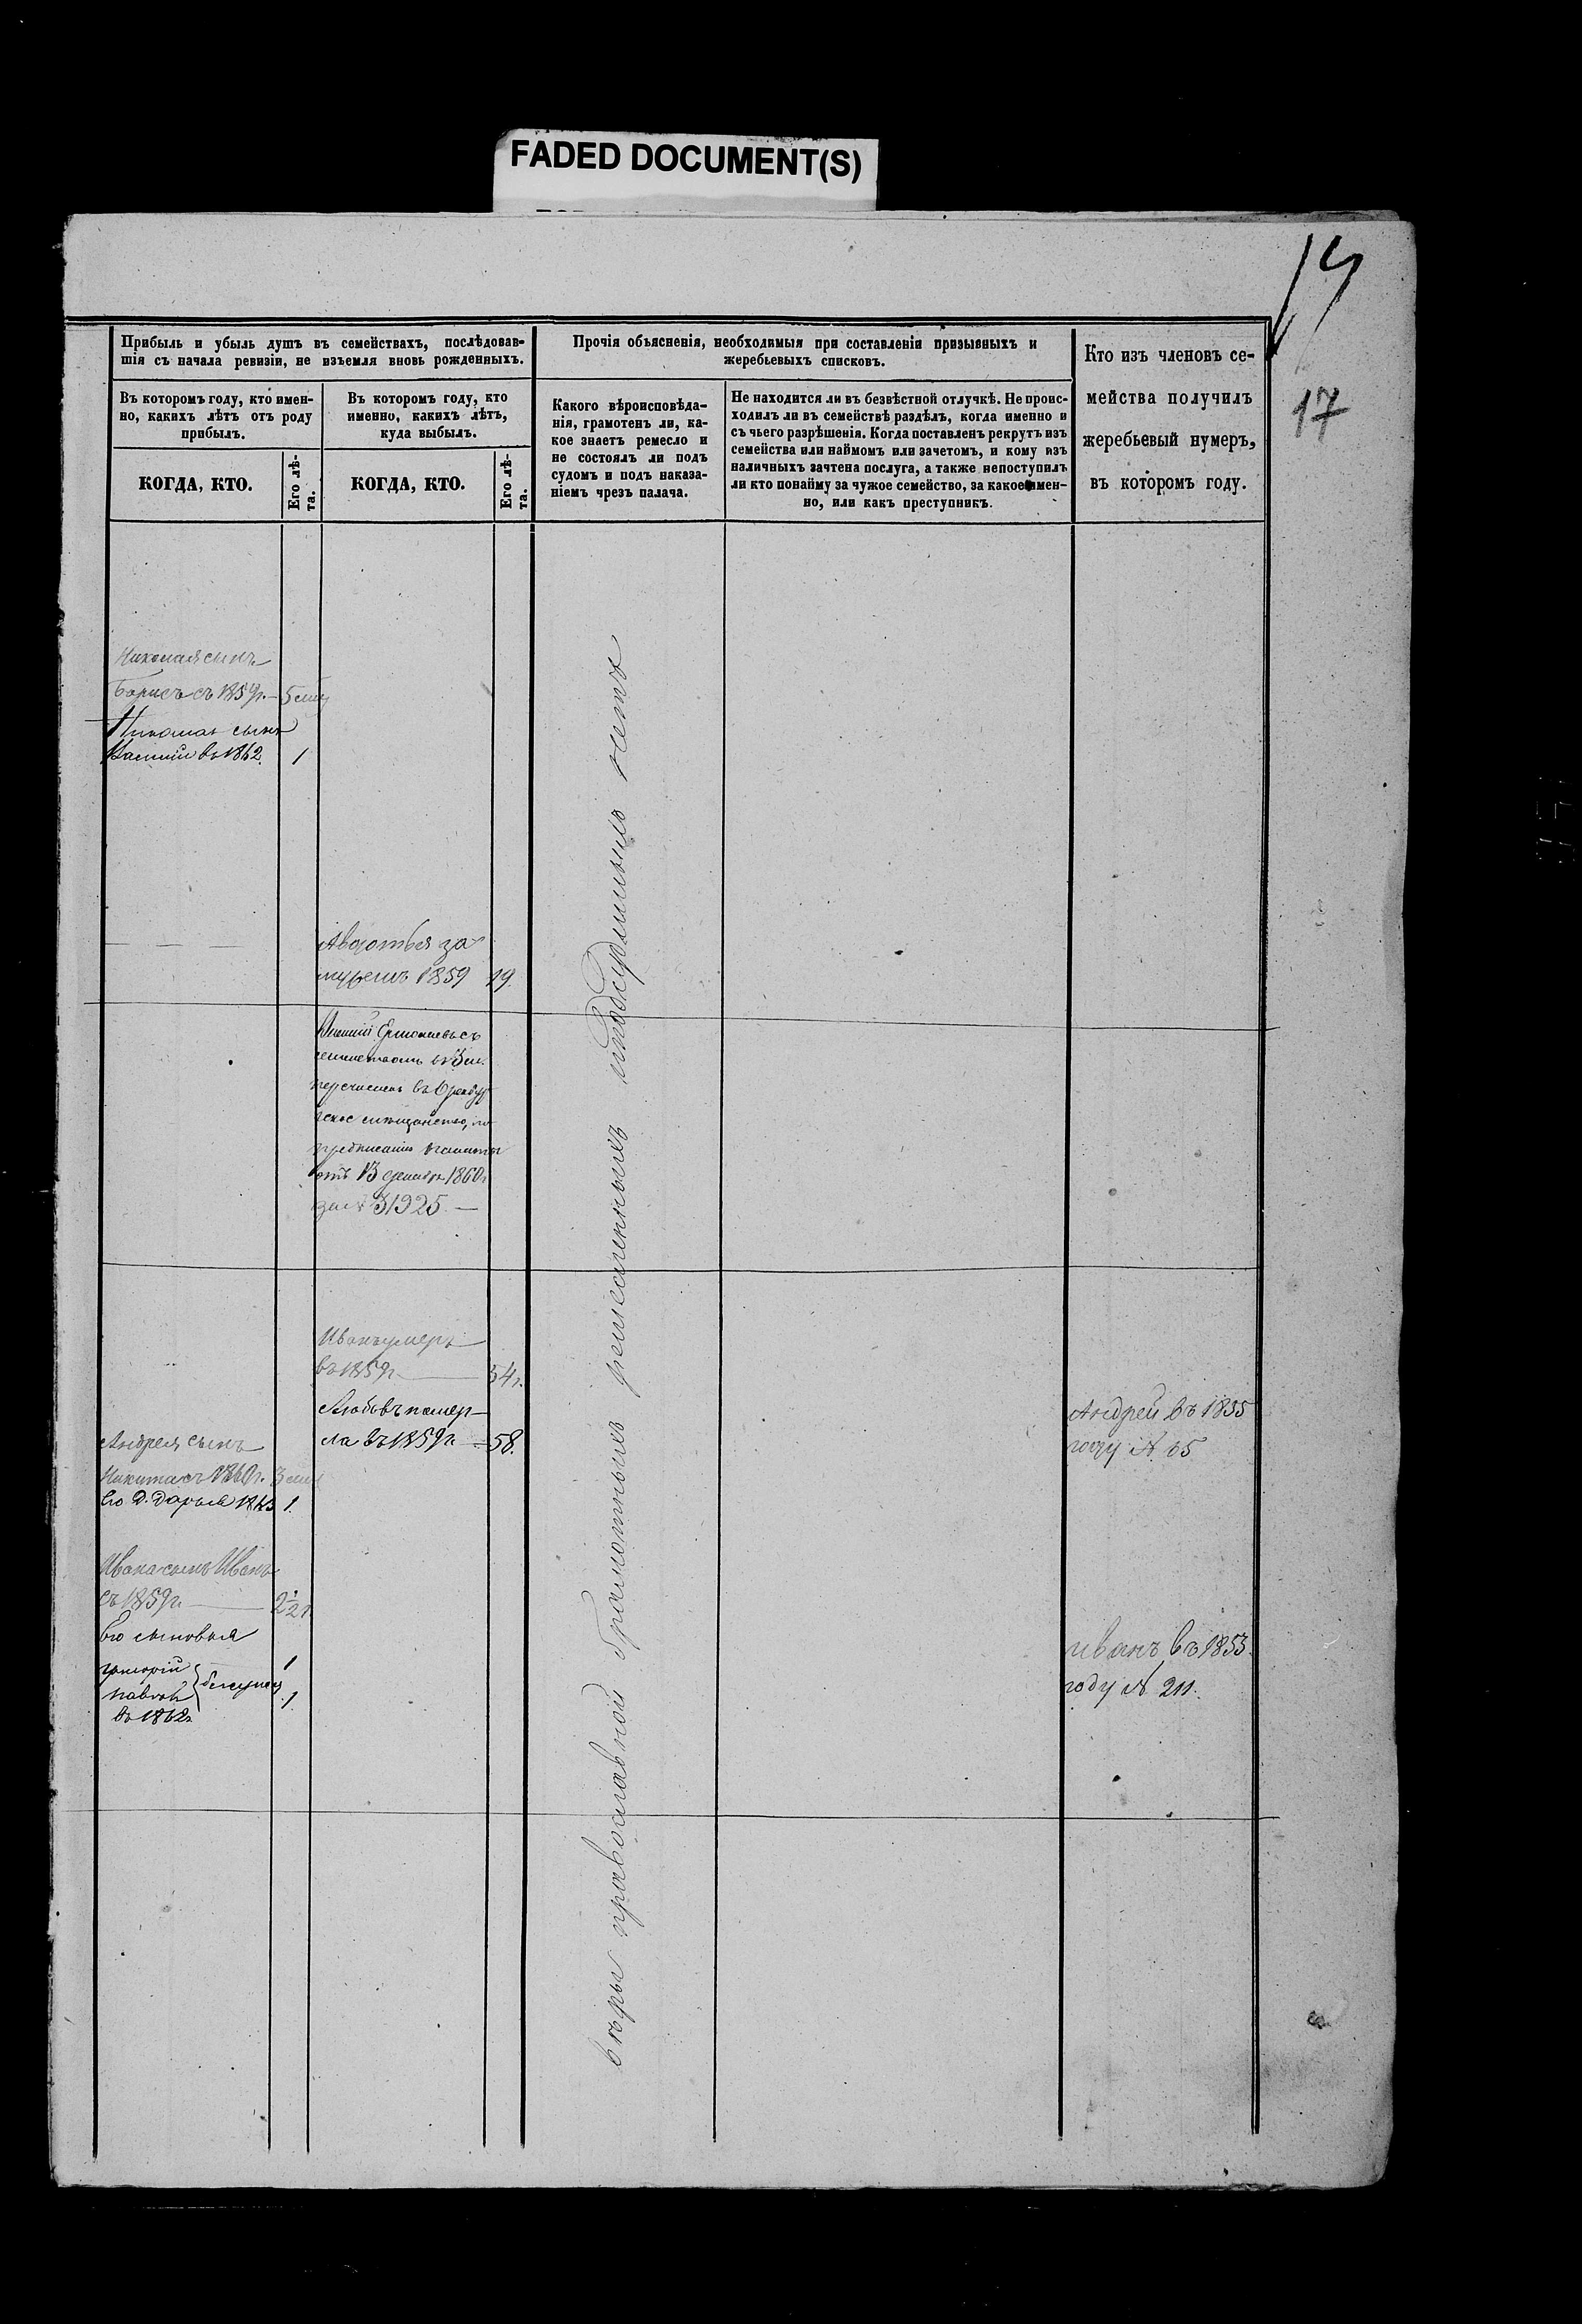 FADED DOCUMENT(S)
17
Прибыль и убыль душъ въ семействахъ, послѣдовав-
шія съ начала ревизіи, не взъемля вновь рожденныхъ.
Въ которомъ году, кто имен-
но, какихъ лѣтъ отъ роду
прибылъ.
КОГДА, КТО.
Его лѣ-
та.
Въ которомъ году, кто
именно, какихъ лѣтъ,
куда выбылъ.
КОГДА, КТО.
Его лѣ-
та.
Прочія объясненія, необходимыя при составленіи призывныхъ и
жеребьевыхъ списковъ.
Какого вѣроисповѣда-
нія, грамотенъ ли, ка-
кое знаетъ ремесло и
не состоялъ ли подъ
судомъ и подъ наказа-
ніемъ чрезъ палача.
Не находится ли въ безвѣстной отлучкѣ. Не проис-
ходилъ ли въ семействѣ раздѣлъ, когда именно и
съ чьего разрѣшенія. Когда поставленъ рекрутъ изъ
семейства или наймомъ или зачетомъ, и кому изъ
наличныхъ зачтена послуга, а также непоступилъ
ли кто понайму за чужое семейство, за какое имен-
но, или какъ преступникъ.
Кто изъ членовъ се-
мейства получилъ
жеребьевый нумеръ,
въ которомъ году.
Николая сынъ
Борисъ съ 1859г. 5
Николая сынъ
въ 1862. 1
Авдотья за
мужемъ 1859 19.
Ермолаевъ съ
семействомъ
перечисленъ въ Оренбург
ское мѣщанство, по
предписанію палаты
отъ 13 декабря 1860г
за № 31925.
Иванъ умеръ
въ 1859г 54г.
Любовь помер-
ла въ 1859г 58.
Андрея сынъ
Никита съ 1860г. 3
его д. Дарья 1
Ивана сынъ Иванъ
съ 1859г. 2½г.
Его сыновья
Григорій 1
Павелъ 1
въ 1862г
вѣры православной грамотныхъ ремесленныхъ и подсудимыхъ нетъ
Андрей въ 1855
году №
Иванъ въ 1853.
году № 211.